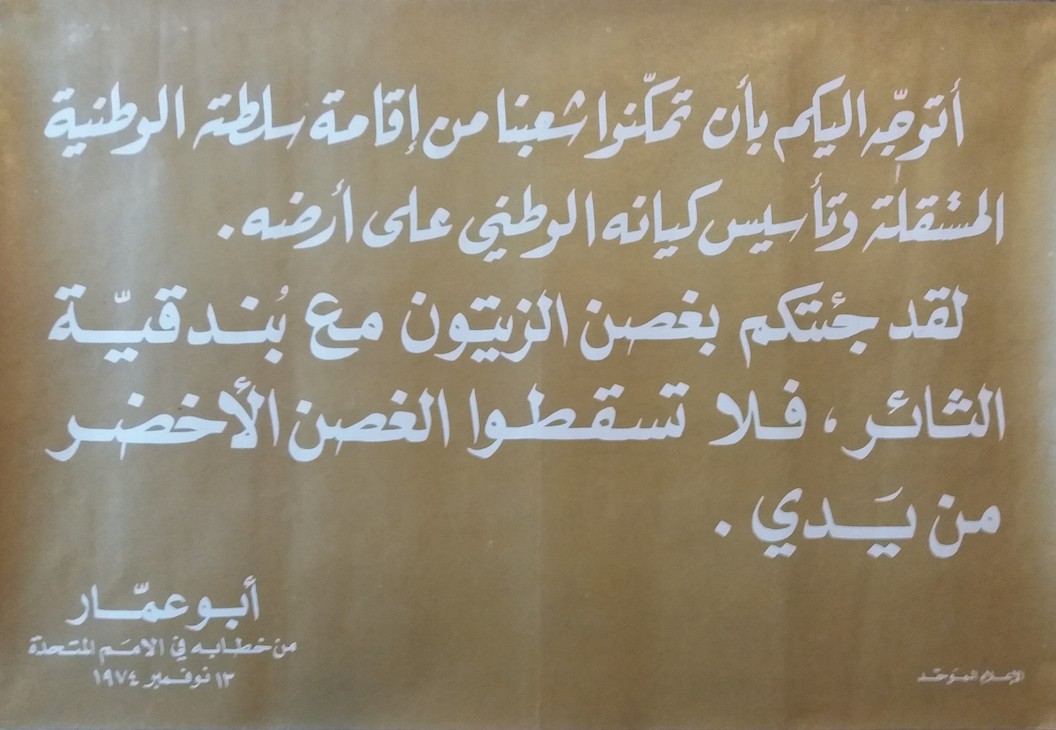 أتوجّه اليكم بأن تمكّنوا شعبنا من إقامة سلطته الوطنية
المستقلة وتأسيس كيانه الوطني على أرضه .
لقد جئتكم بغصن الزيتون مع بُندقيّة
الثائر ، فلا تسقطوا الغصن الأخضر
من يَدي .
أبو عمّار
من خطابه في الامَم المتحدة
١٣ نوفمبر ١٩٧٤
الإعلام الموَحّد